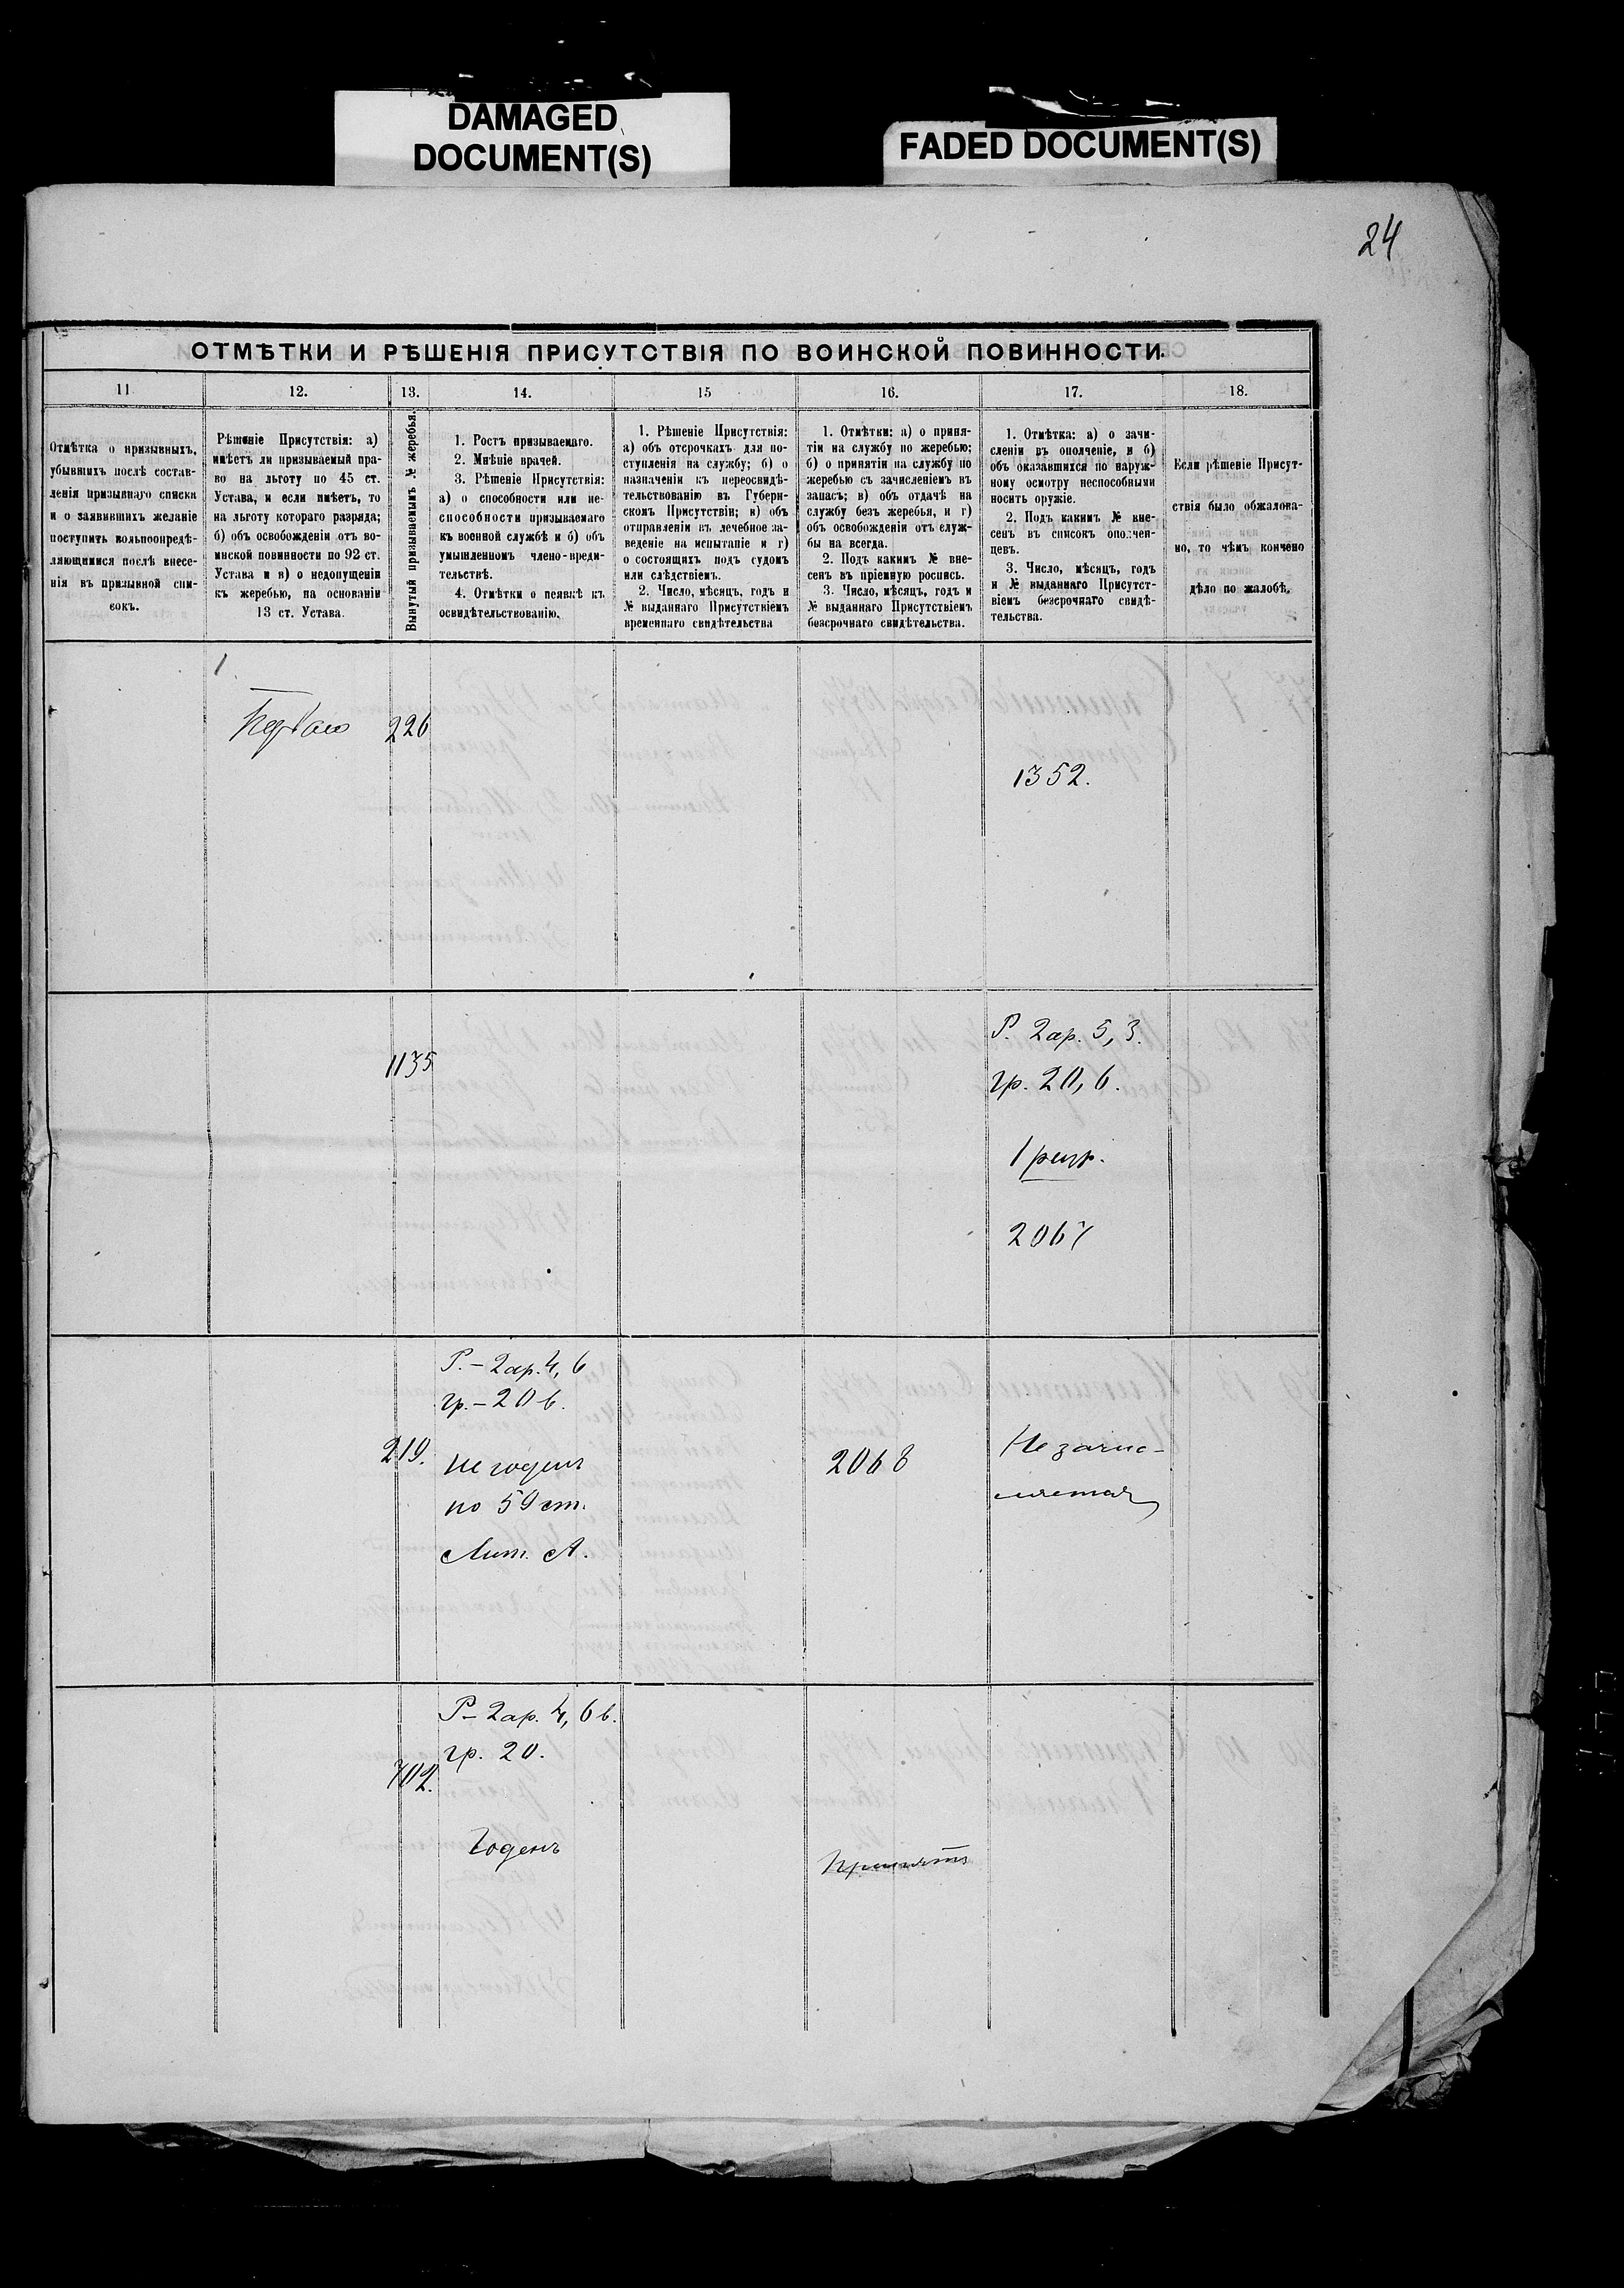 DAMAGED
DOCUMENT(S)
FADED DOCUMENT(S)
24
ОТМѢТКИ И РѢШЕНІЯ ПРИСУТСТВІЯ ПО ВОИНСКОЙ ПОВИННОСТИ.
11
12.
13.
14.
15
16.
17.
18.
Отмѣтка о призывныхъ,
убывшихъ послѣ состав-
ленія призывнаго списка
и о заявившихъ желаніе
поступить вольноопредѣ-
ляющимися послѣ внесе-
нія въ призывной спи-
сокъ.
Рѣшеніе Присутствія: а)
имѣетъ ли призываемый пра-
во на льготу по 45 ст.
Устава, и если имѣетъ, то
на льготу котораго разряда;
б) объ освобожденіи отъ во-
инской повинности по 92 ст.
Устава и в) о недопущеніи
къ жеребью, на основаніи
13 ст. Устава.
Вынутый призываемымъ № жеребья.
1. Ростъ призываемаго.
2. Мнѣніе врачей.
3. Рѣшеніе Присутствія:
а) о способности или не-
способности призываемаго
къ военной службѣ и б) объ
умышленномъ члено-вреди-
тельствѣ.
4. Отмѣтки о неявкѣ къ
освидѣтельствованію.
1. Рѣшеніе Присутствія:
а) объ отсрочкахъ для по-
ступленія на службу; б) о
назначеніи къ переосвидѣ-
тельствованію въ Губерн-
скомъ Присутствіи; в) объ
отправленіи въ лечебное за-
веденіе на испытаніе и г)
о состоящихъ подъ судомъ
или слѣдствіемъ.
2. Число, мѣсяцъ, годъ и
№ выданнаго Присутствіемъ
временнаго свидѣтельства
1. Отмѣтки: а) о приня-
тіи на службу по жеребью;
б) о принятіи на службу по
жеребью съ зачисленіемъ въ
запасъ; в) объ отдачѣ на
службу безъ жеребья, и г)
объ освобожденіи отъ служ-
бы на всегда.
2. Подъ какимъ № вне-
сенъ въ пріемную роспись.
3. Число, мѣсяцъ, годъ и
№ выданнаго Присутствіемъ
безсрочнаго свидѣтельства.
1. Отмѣтка: а) о зачи-
сленіи въ ополченіе, и б)
объ оказавшихся по наруж-
ному осмотру неспособными
носить оружіе.
2. Подъ какимъ № вне-
сенъ въ списокъ ополчен-
цевъ.
3. Число, мѣсяцъ, годъ
и № выданнаго Присутст-
віемъ безсрочнаго свидѣ-
тельства.
Если рѣшеніе Присут-
ствія было обжалова-
но, то чѣмъ кончено
дѣло по жалобѣ.
1
226
1352.
1135
Р. 2ар. 5, 3.
гр. 20, 6.
1
2067
Р.–2ар. 4, 6
гр.–20 в.
219.
Негоденъ
по 59 ст.
Лит. А.
2068
Не зачис-
ляется
Р–2ар. 4, 6 в.
гр. 20.
702.
Годенъ
Принятъ